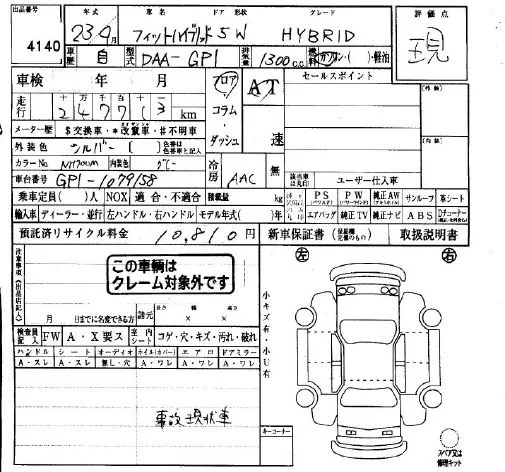 出品番号 年式 車名 ドア形状 グレード 評価点
4140 23年9月 フィットハイブリッド 5W HYBRID 現
車歴 自 型式 DAA-GP1 排気量 1300cc 燃料 ガソリン・軽油
車検 年 月 フロア AT セールスポイント 【外装】
走行 十万千百十 247713 km コラム・ダッシュ 速
メーター歴 $交換車・*改竄車・#不明車
外装色 シルバー [ ] 色番は色番表と記入 【内装】
カラーNo. NH700M 内装色 グレー 冷房 AAC 無 該当車は丸印 ユーザー仕入車
車台番号 GP1-1079158
乗車定員( )人 NOX 適合・不適合 積載量 kg PS PW 純正AW サンルーフ 革シート
輸入車 ディーラー・並行 左ハンドル・右ハンドル モデル年式( )年 エアバッグ 純正TV 純正ナビ ABS
預託済リサイクル料金 10,810円 新車保証書 (保証継続可能のもの) 取扱説明書
注意事項(出品店記入) この車輌は
クレーム対象外です
左 右
月 日までに名変できる方 諸元 長 幅 高
× ×
小キズ有・小U有
検査員記入 FW A・X要ス 室内シート コゲ・穴・キズ・汚れ・破れ
ハンドル シート オーディオ ホイル(カバー) エアロ ドアミラー
A・スレ A・スレ 無し・穴 A・ワレ A・ワレ A・ワレ
事故現状車
キーコーナー
スペア又は
修理キット